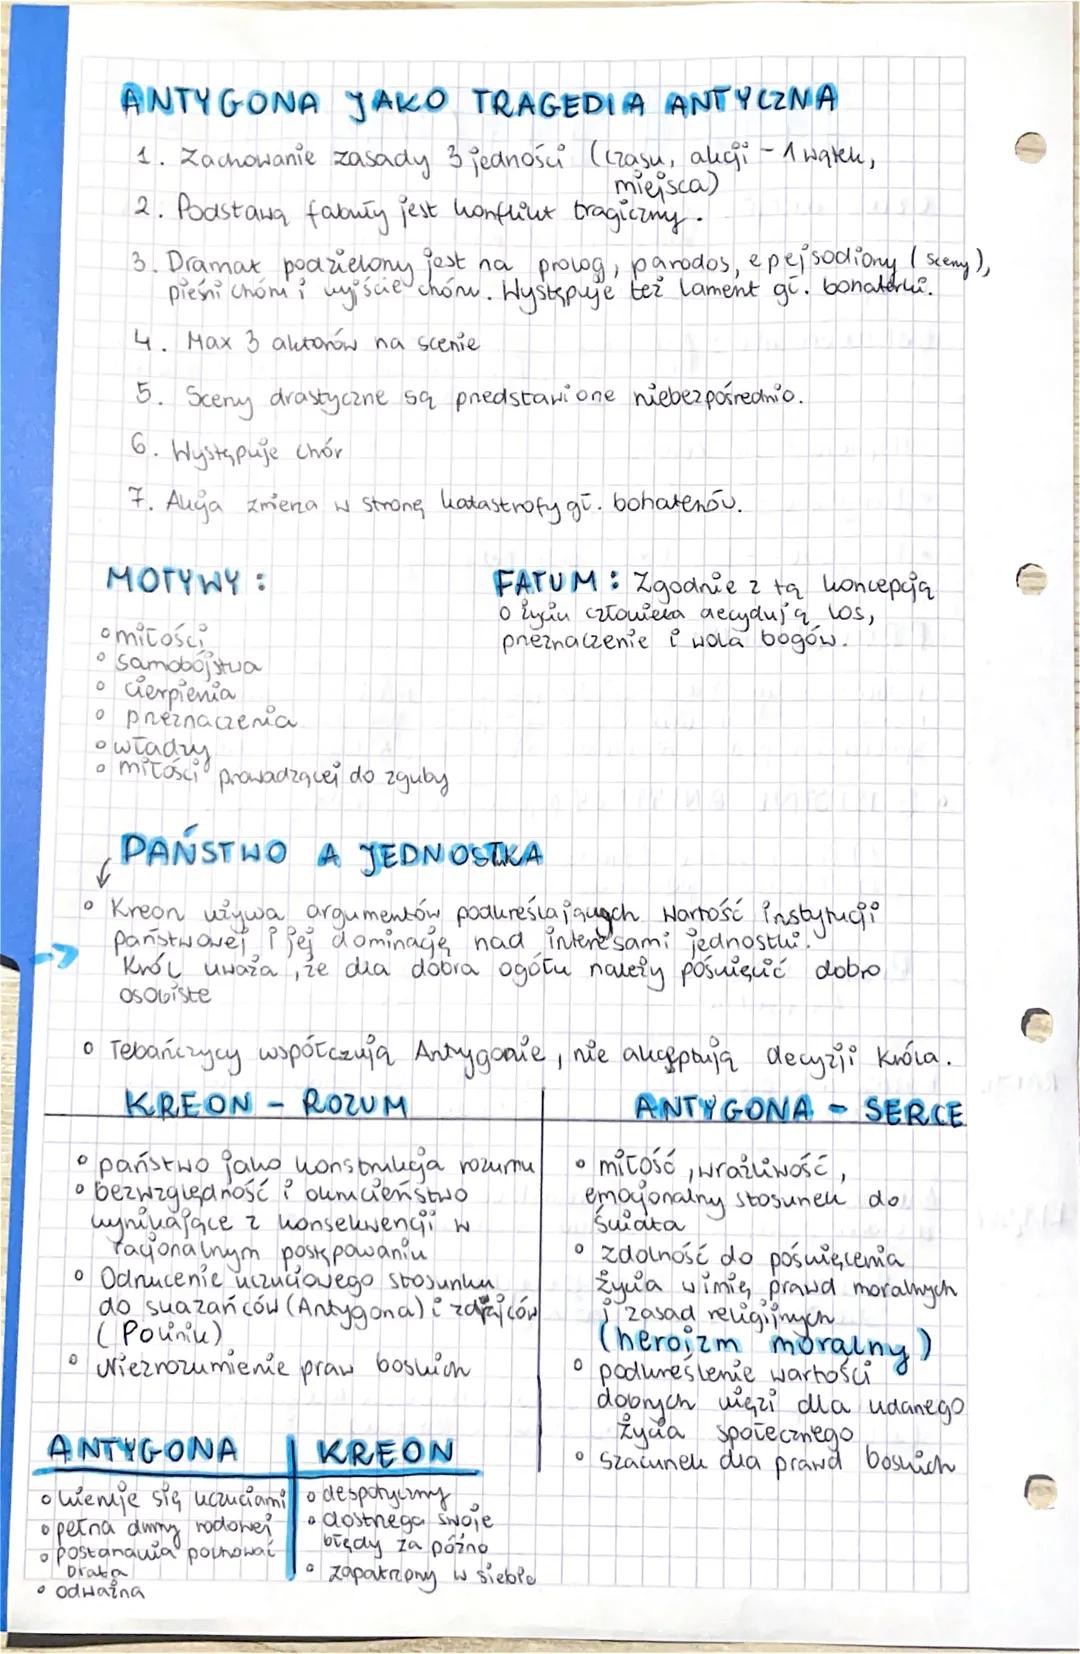 ANTYGONA JAKO TRAGEDIA ANTYCZNA
1. Zachowanie zasady 3 jedności (czasu, akcji - 1 wątek,
miejsca)
2. Podstawą fabuły jest konflikt tragiczny.
3. Dramat podzielony jest na prolog, parodos, epejsodiony (sceny),
pieśni chóru i wyjście chóru. Występuje też lament gł. bohaterki.
4. Max 3 aktorów na scenie
5. Sceny drastyczne są przedstawione niebezpośrednio.
6. Występuje chór
7. Akcja zmierza w stronę katastrofy gł. bohaterów.
MOTYWY:
• miłości
• samobójstwa
• cierpienia
• przeznaczenia
• władzy
• miłości prowadzącej do zguby
FATUM: Zgodnie z tą koncepcją
o życiu człowieka decydują los,
przeznaczenie i wola bogów.
PAŃSTWO A JEDNOSTKA
• Kreon używa argumentów podkreślających wartość instytucji
państwowej i jej dominację nad interesami jednostki.
Król uważa, że dla dobra ogółu należy poświęcić dobro
osobiste
• Tebańczycy współczują Antygonie, nie akceptują decyzji króla.
KREON - ROZUM
• państwo jako konstrukcja rozumu
• bezwzględność i okrucieństwo
wynikające z konsekwencji w
racjonalnym postępowaniu
• Odrzucenie uczuciowego stosunku
do skazańców (Antygona) i zdrajców
(Polinik)
• Niezrozumienie praw boskich
ANTYGONA - SERCE
• miłość, wrażliwość,
emocjonalny stosunek do
świata
• zdolność do poświęcenia
życia w imię prawd moralnych
i zasad religijnych
(heroizm moralny)
• podkreślenie wartości
dobrych więzi dla udanego
życia społecznego
• szacunek dla prawd boskich
ANTYGONA
• kieruje się uczuciami
• pełna dumy rodowej
• postanawia pochować
brata
• odważna
KREON
• despotyczny
• dostrzega swoje
błędy za późno
• zapatrzony w siebie